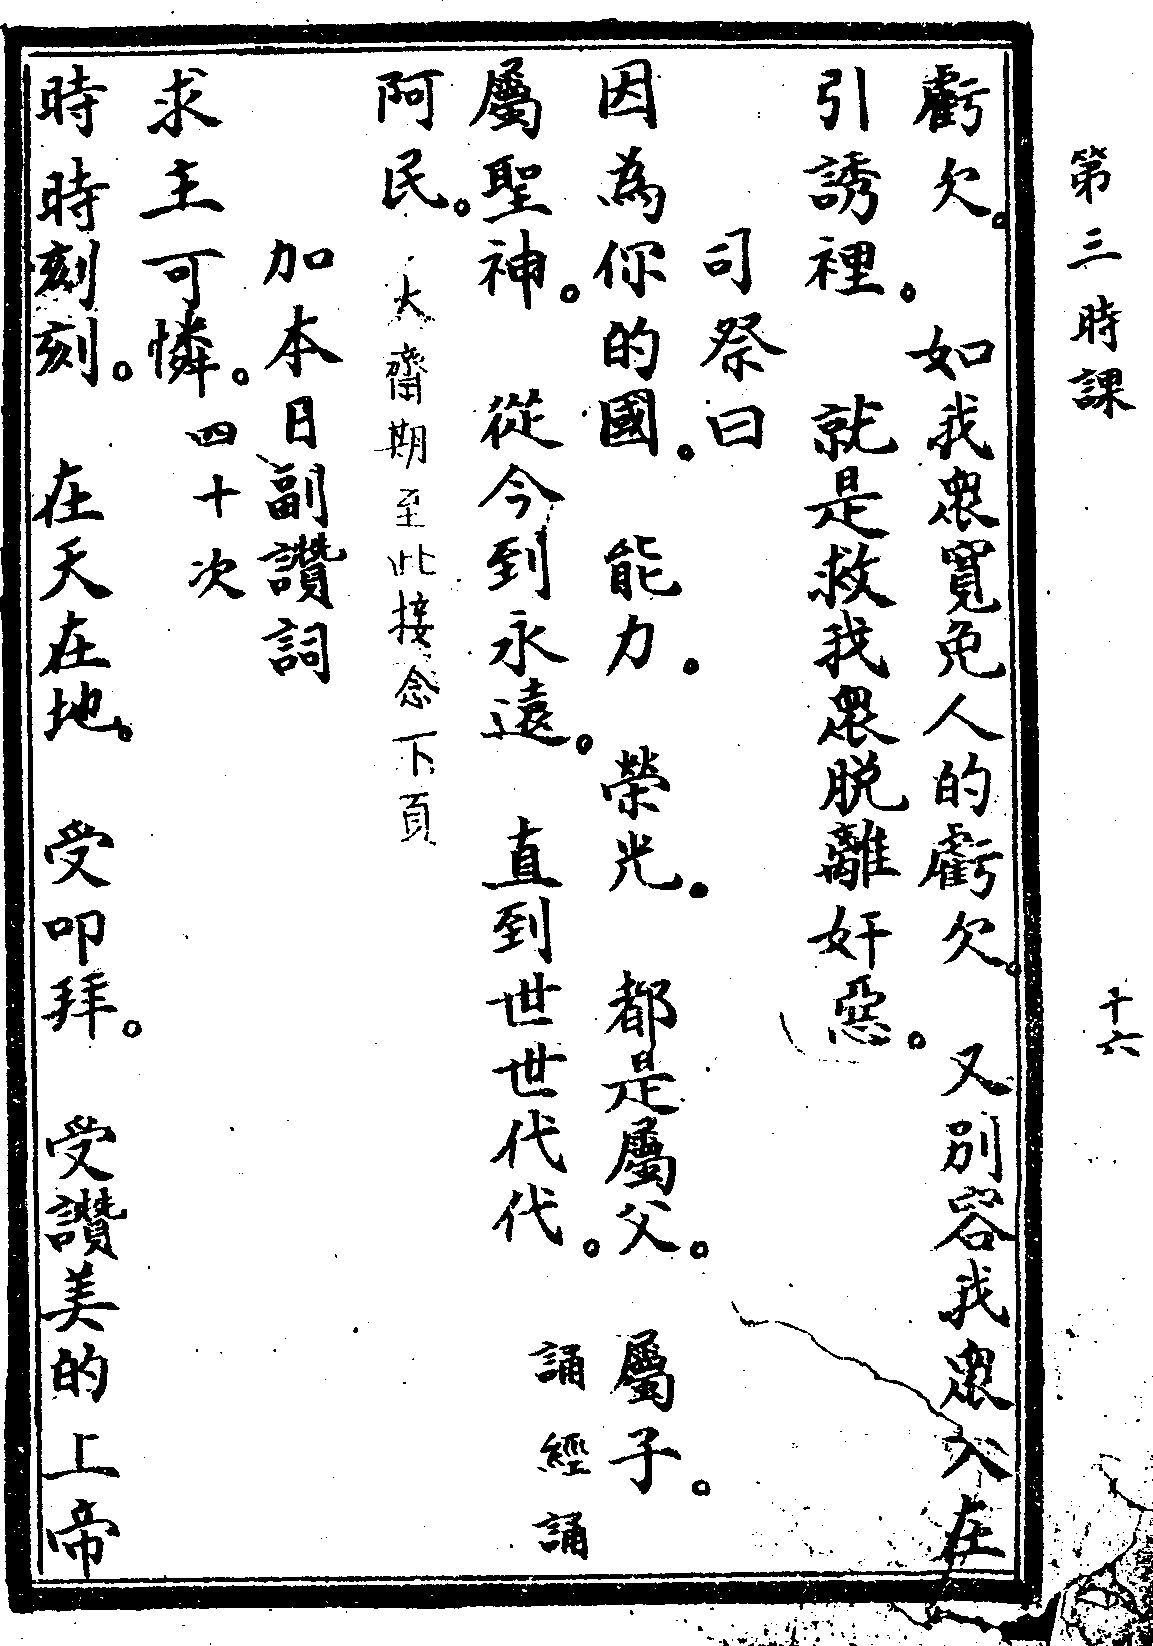 第三時課
十六
虧欠。如我眾寬免人的虧欠。又別容我眾入在
引誘裡。就是救我眾脱離奸惡。
司祭曰
因為你的國。能力。榮光。都是屬父。屬子。
屬聖神。從今到永遠。直到世世代代。誦經誦
阿民。大齋期至此接念下頁
加本日副讚詞
求主可憐。四十次
時時刻刻。在天在地。受叩拜。受讚美的上帝